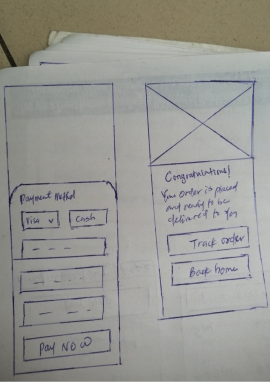 Payment Method
Visa
Cash
Pay NOW
Congratulations!
Your order is placed
and ready to be
delivered to you
Track order
Back home